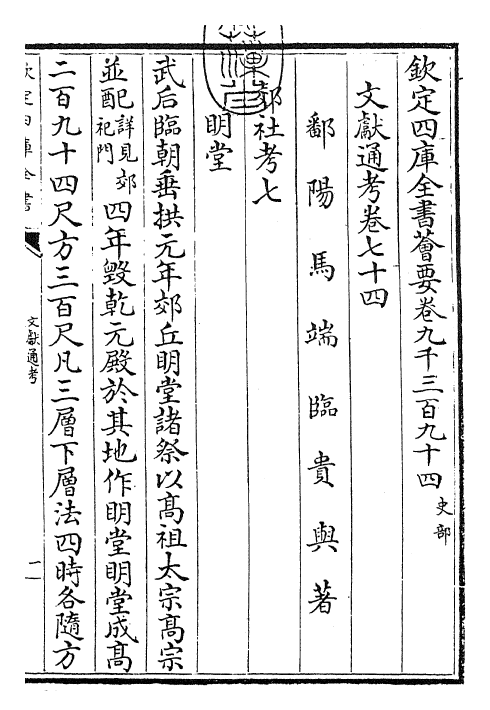 欽定四庫全書薈要卷九千三百九十四 史部
文獻通考卷七十四
鄱陽馬端臨貴與著
郊社考七
明堂
武后臨朝垂拱元年郊丘明堂諸祭以髙祖太宗髙宗
並配詳見郊祀門四年毀乾元殿於其地作明堂明堂成髙
二百九十四尺方三百尺凡三層下層法四時各隨方
文獻通考
一